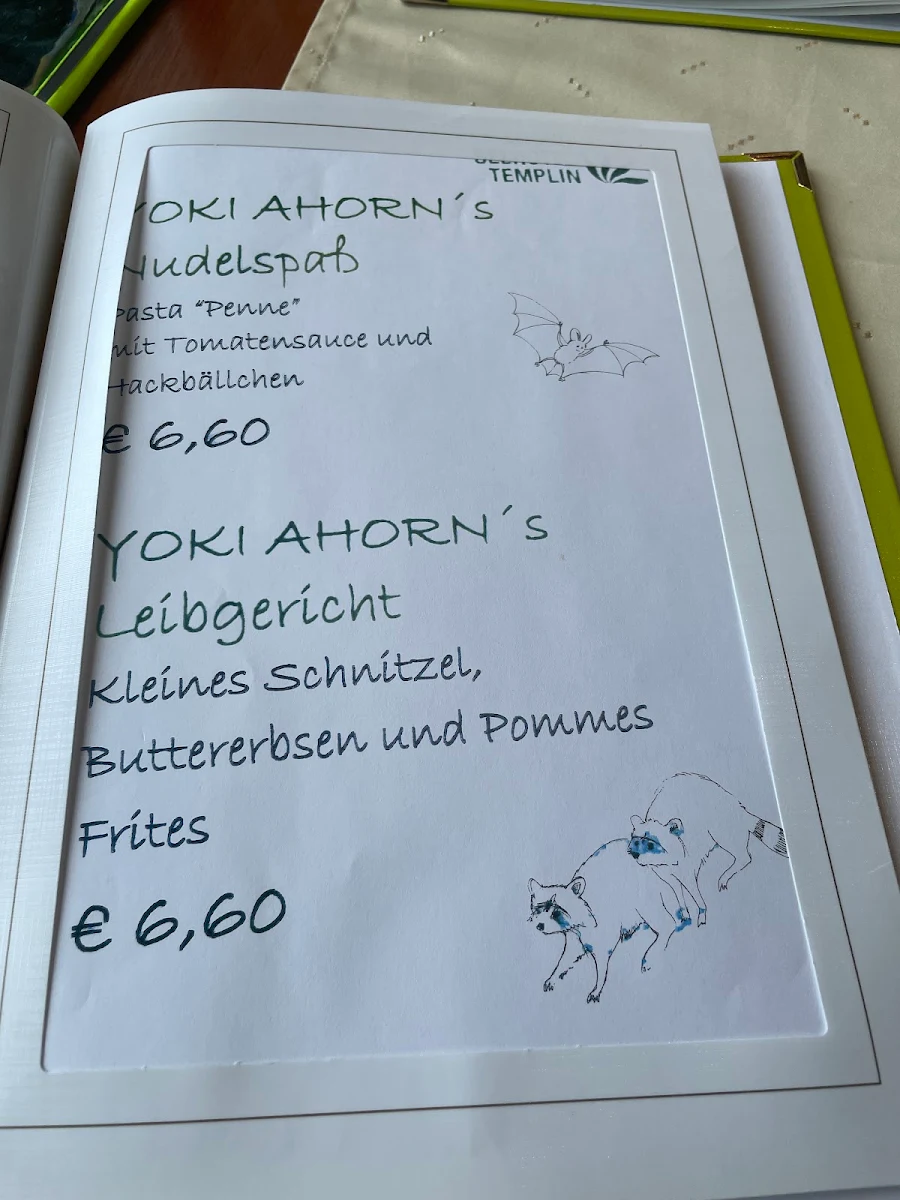 TEMPLIN
YOKI AHORN´s
Nudelspaß
Pasta "Penne"
mit Tomatensauce und
Hackbällchen
€ 6,60
YOKI AHORN´s
Leibgericht
Kleines Schnitzel,
Buttererbsen und Pommes
Frites
€ 6,60